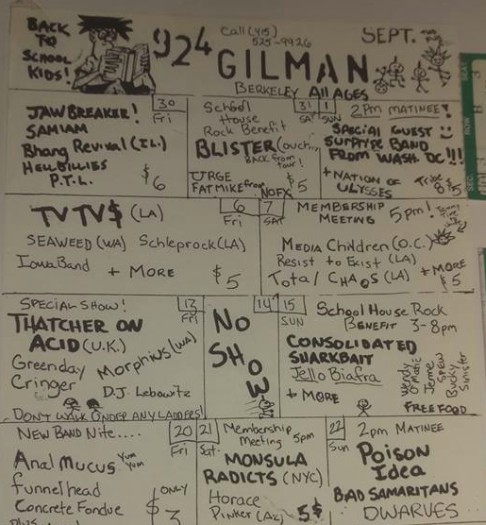 BACK
TO
SCHOOL
KIDS!
924
GILMAN
Call (415)
525-9926
SEPT.
BERKELEY All AGES
30
Fri
JAWBREAKER!
SAMIAM
Bhang Revival (IL.)
HELLBILLIES
P.T.L.
$6
31
SAT
School
House
Rock Benefit
BLISTER (ouch,
BACK from
Tour!
URGE
FAT MIKE from NOFX
$5
1
SUN
2pm MATINEE!
SPECIAL GUEST
SURPRISE BAND
FROM WASH. DC!!!
+ NATION OF
ULYSSES
Tribe 8
$5
6
Fri
TV TV$ (LA)
SEAWEED (WA) Schleprock (LA)
Iowa Band + MORE
$5
7
SAT
MEMBERSHIP
MEETING 5pm!
MEDIA Children (O.C.)
Resist to Exist (LA)
Total CHAOS (LA) + MORE
$5
13
FRI
SPECIAL SHOW!
THATCHER ON
ACID (U.K.)
Greenday Morphius (WA)
Cringer
D.J. Lebowitz
DON'T WALK UNDER ANY LADDERS!
14
NO
SHOW
15
SUN
School House Rock
BENEFIT 3-8pm
CONSOLIDATED
SHARKBAIT
Jello Biafra
+ MORE
Wendy
O Matic
Jenne
Spew
Bucky
Sinister
FREE FOOD
20
Fri
NEW BAND Nite....
Anal Mucus Yum Yum
funnelhead
Concrete Fondue
ONLY
$3
21
Sat.
Membership
Meeting 5pm
MONSULA
RADICTS (NYC)
Horace
Pinker (AZ)
5$
22
Sun
2pm MATINEE
POISON
IDEA
BAD SAMARITANS
DWARVES